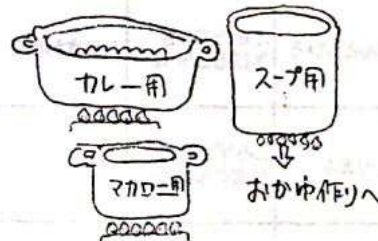 カレー用
スープ用
マカロニ用
おかゆ作りへ